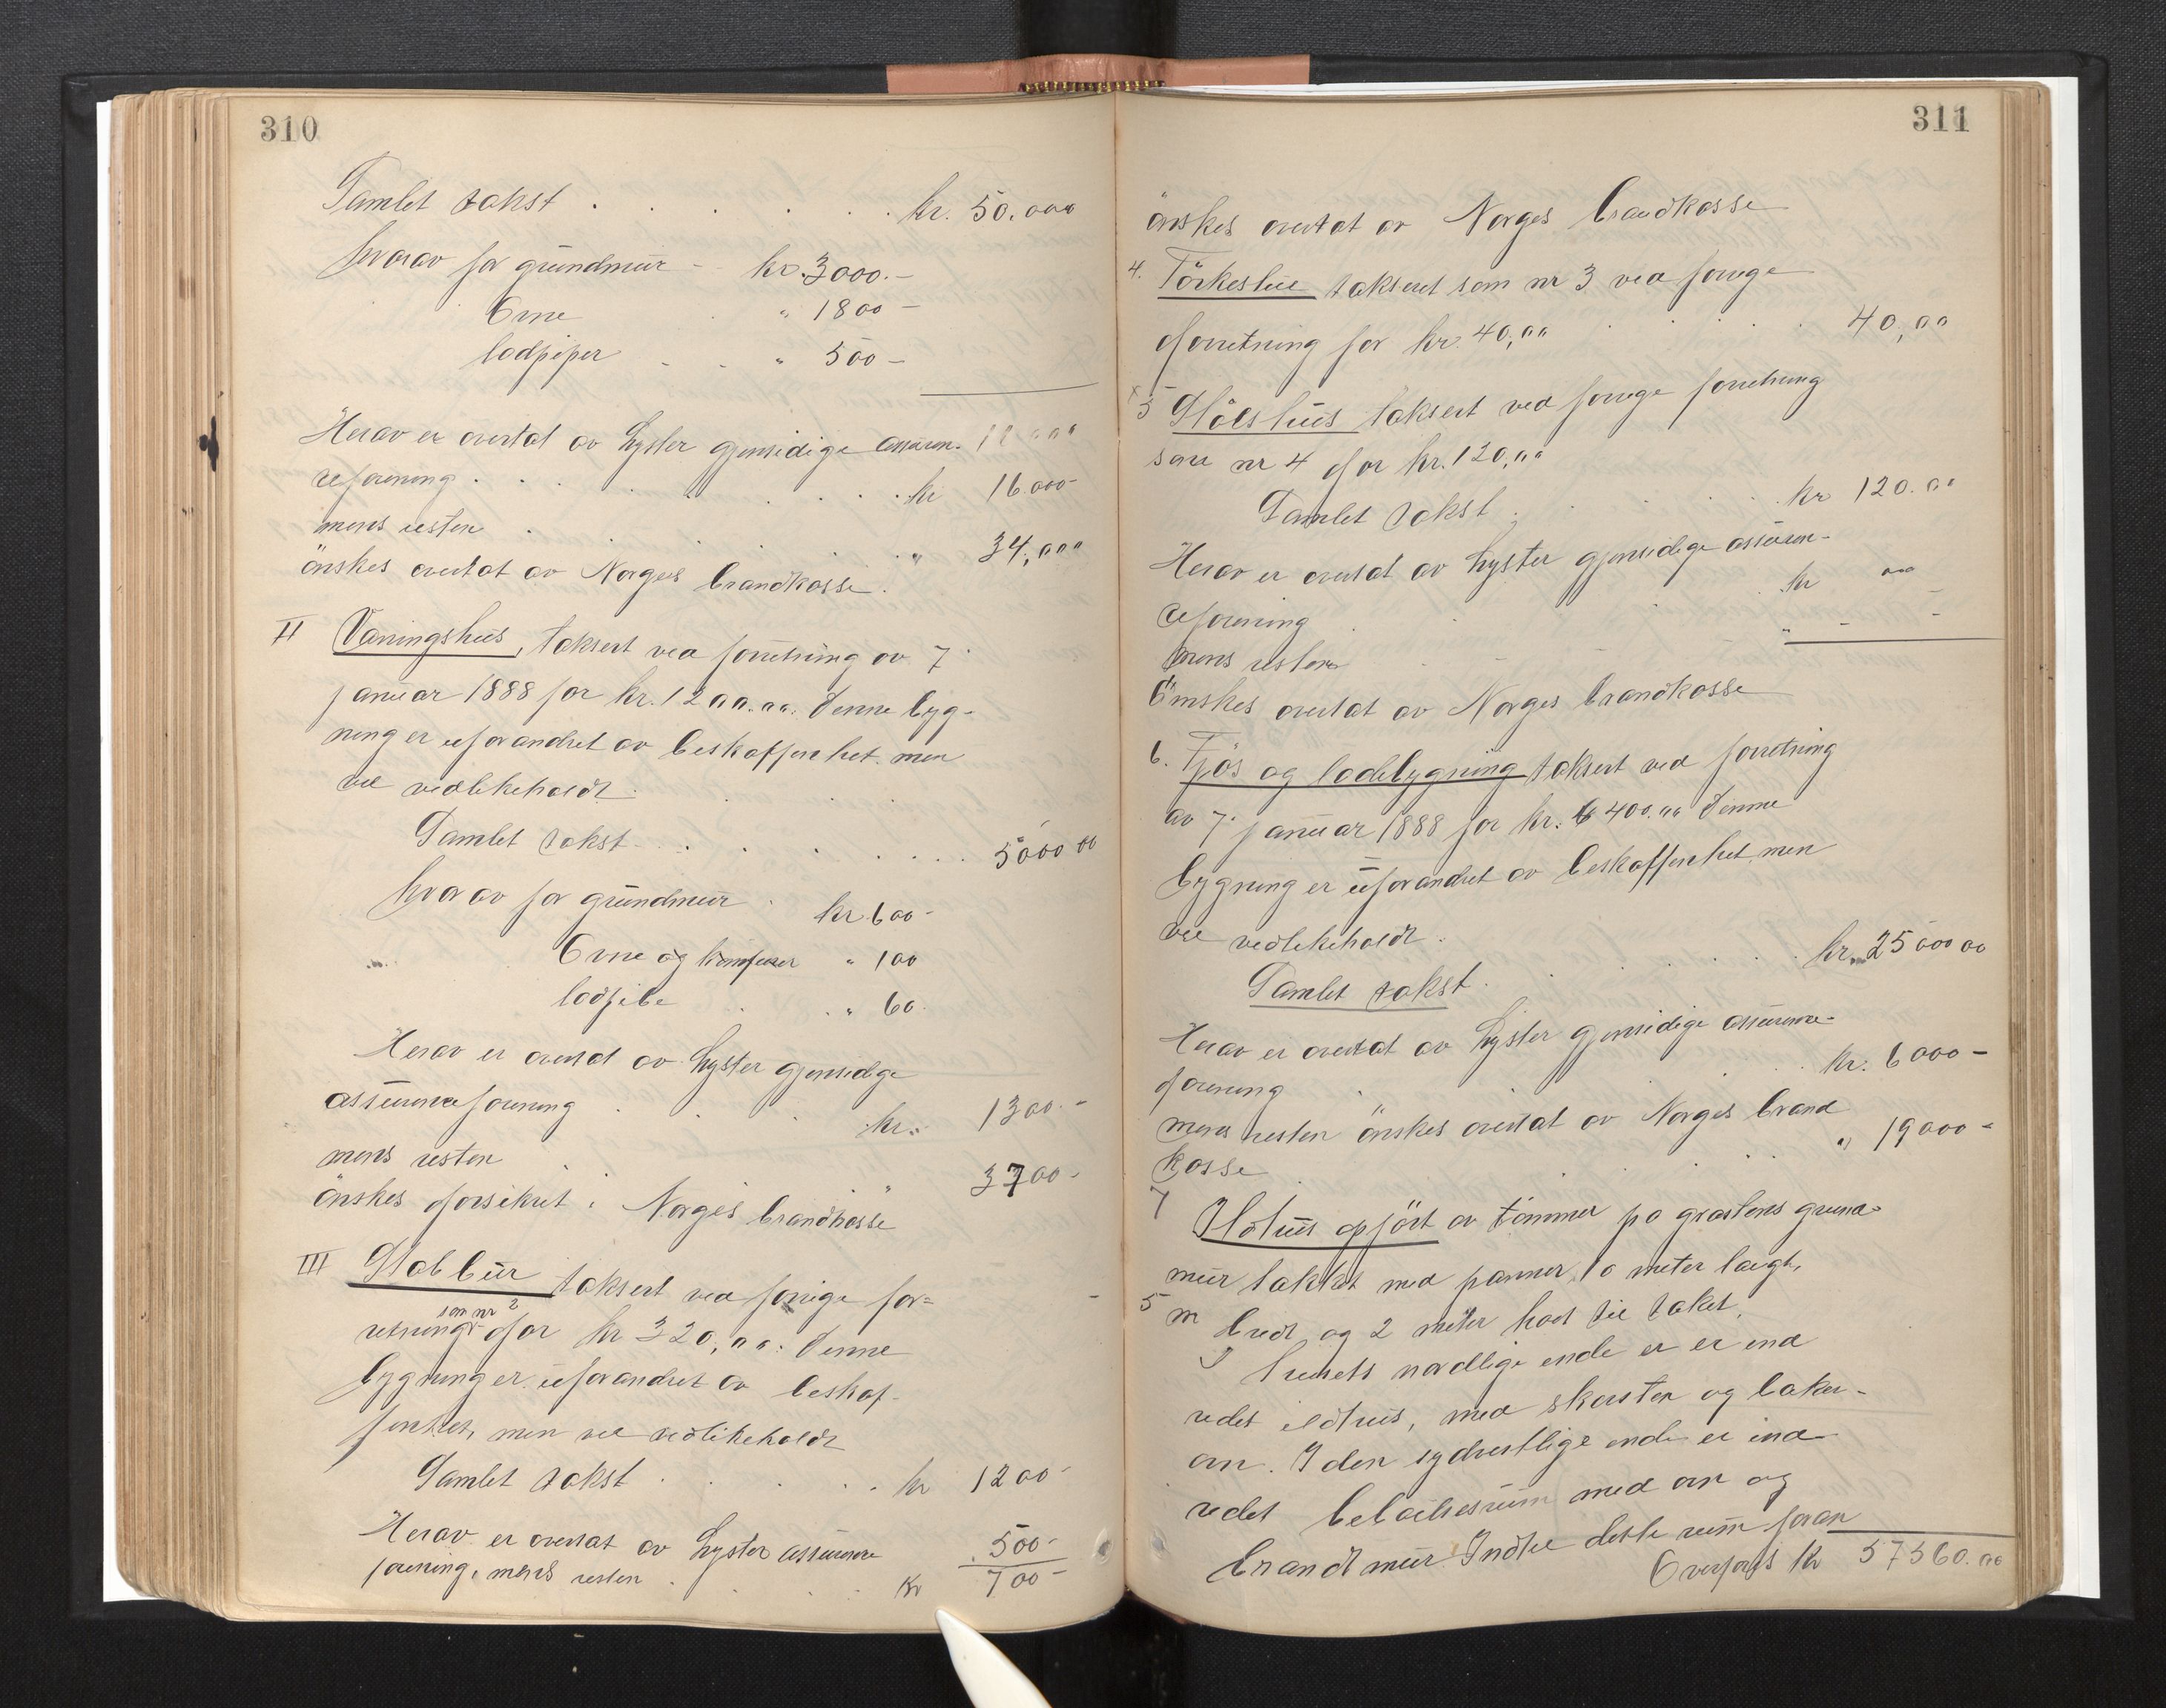 310
Samlet takst . . . . . kr. 50.000
hvorav for grundmur - kr. 3000.-
Ovne " 1800 -
lodpiper . . " 500 -
Herav er overtat av Lyster gjensidige assuran-
ceforening . . . . . . . kr 16.000-
mens resten . . . . . " 34,000
önskes overtat av Norges brandkasse.
II Vaaningshus, taksert ved forretning av 7.
januar 1888 for kr. 1200.00. Denne byg-
ning er uforandret av beskaffenhet, men
vel vedlikeholdt.
Samlet takst . . . . . 5000 00
hvorav for grundmur . kr 600-
Ovne og komfurer " 100
lodpibe . . " 60.
Herav er overtat av Lyster gjensidige
assuranceforening . . . kr. 1300.-
mens resten . . " 3700-
önskes forsikret i Norges brandkasse
III Stabbur taksert ved forrige for=
som nr 2
retning for kr 320,00. Denne
bygning er uforandret av beskaf-
fenhet, men vel vedlikeholdt
Samlet takst . . . . kr 1200-
Herav er overtat av Lyster assurance 500-
forening, mens resten . . . . kr 700-
311
önskes overtat av Norges brandkasse
4. Törkeshue taksert som nr 3 ved forrige
forretning for kr. 40,00 . . . . 40,00
5 Stölshus taksert ved forrige forretning
som nr 4 for kr. 120,00
Samlet takst . . . . kr 120.00
Herav er overtat av Lyster gjensidige assuran-
ceforening . . . . kr
mens resten . . . " - -
Önskes overtat av Norges brandkasse
6. Fjös og ladebygning taksert ved forretning
av 7. januar 1888 for kr. 6400.00 Denne
bygning er uforandret av beskaffenhet, men
vel vedlikeholdt.
Samlet takst . . . . . kr. 25000 00
Herav er overtat av Lyster gjensidige assurance-
forening . . . . kr. 6000 -
mens resten önskes overtat av Norges brand
kasse . . . . " 19000 -
7 Ildhus opfört av tömmer pa grastens grund-
mur taklagt med panner, 10 meter langt,
5 m bredt, og 2 meter hoit til taket.
I husets nordlige ende er er ind
redet ildhus, med skorsten og baker-
ovn. I den sydvestlige ende er ind
redet beboelsesrum med ovn og
brandtmur. Indtil dette rum foran
Overføres Kr 57560.00